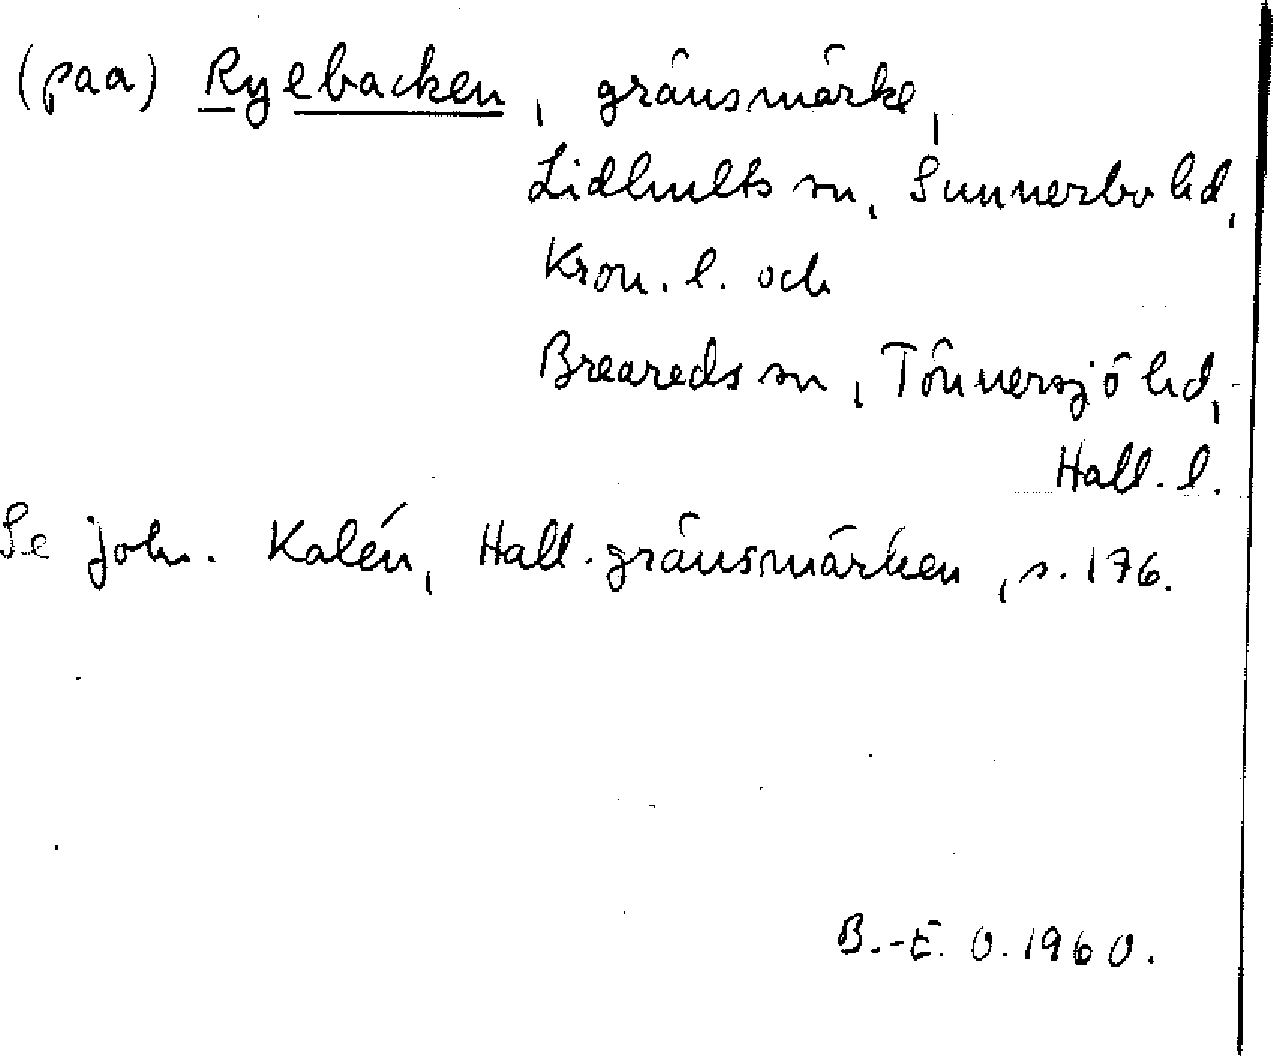 (paa) Ryebacken, gränsmärke,
Lidhults sn, Sunnerbo hd,
Kron. l. och
Breareds sn, Tönnersjö hd,
Hall. l.
Se Joh. Kalén, Hall. gränsmärken, s. 176.
B.-E. O. 1960.